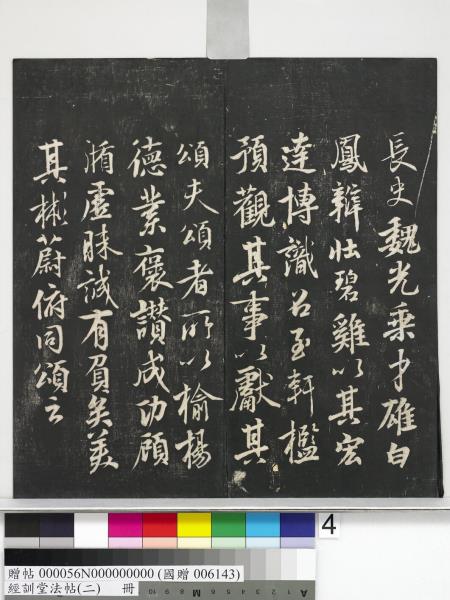 長史魏光乘才雄白
鳳辯壯碧雞以其宏
達博識召至軒檻
預觀其事以獻其
頌夫頌者所以揄揚
德業褒讚成功顧
循虛昧誠有負矣美
其彬蔚俯同頌云
4
贈帖 000056N000000000 (國贈 006143)
經訓堂法帖(二) 冊